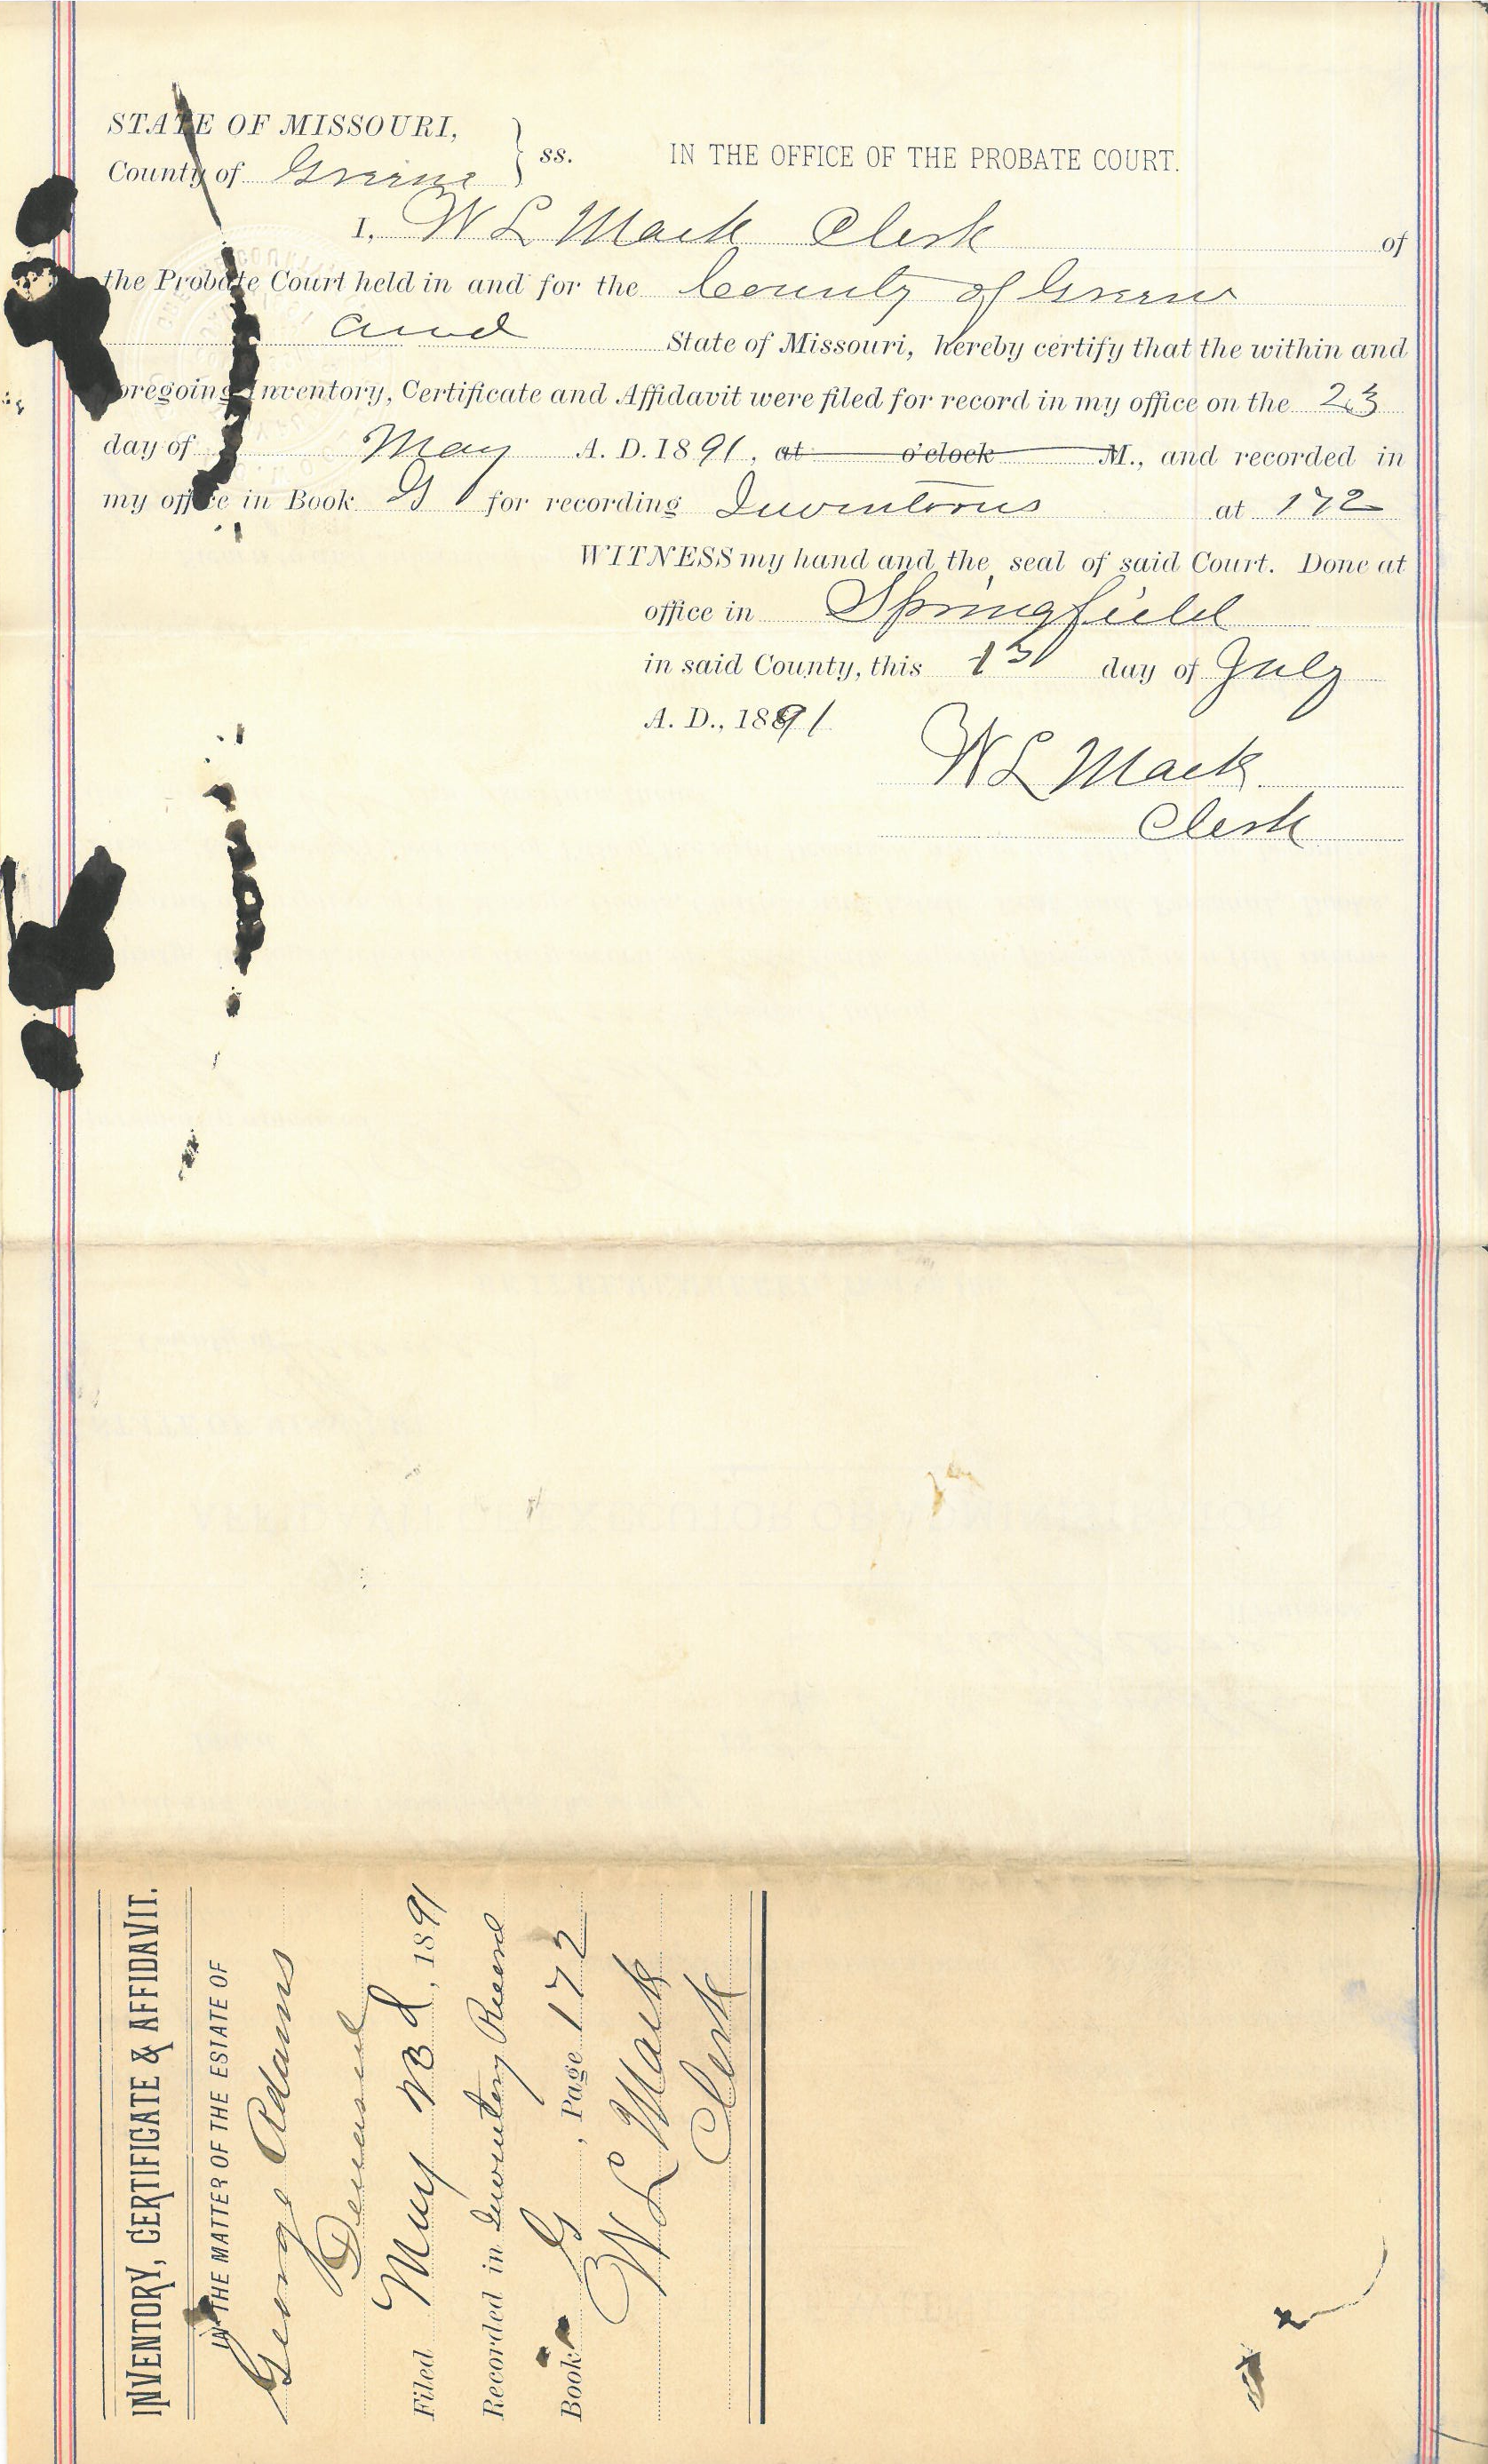 STATE OF MISSOURI,
County of Greene } ss. IN THE OFFICE OF THE PROBATE COURT.
I, W L Mack Clerk of
the Probate Court held in and for the County of Greene
and State of Missouri, hereby certify that the within and
foregoing Inventory, Certificate and Affidavit were filed for record in my office on the 23
day of May A. D. 1891, at o'clock M., and recorded in
my office in Book G for recording Inventories at 172
WITNESS my hand and the seal of said Court. Done at
office in Springfield
in said County, this 13 day of July
A. D., 1891
W L Mack
Clerk
INVENTORY, CERTIFICATE & AFFIDAVIT.
IN THE MATTER OF THE ESTATE OF
George Adams
Deceased
Filed May 23 d, 1891
Recorded in Inventory Record
Book G, Page 172
W L Mack
Clerk